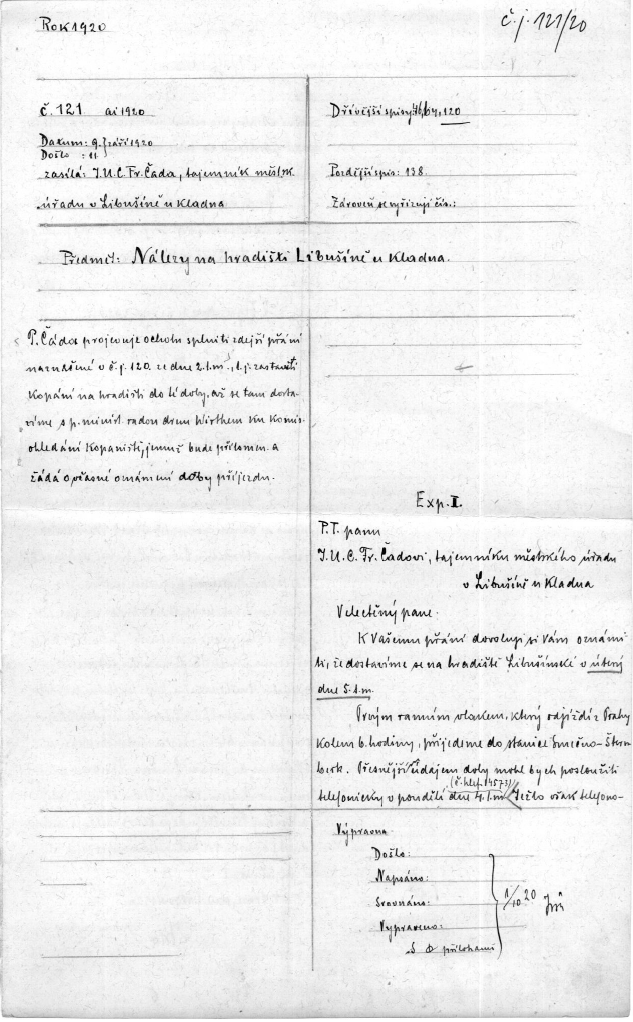 Rok 1920
č. j. 121/20
č. 121 ai 1920
Datum: 9. } září 1920
Došlo: 11.
zasílá: J.U.C. Fr. Čáda, tajemník městsk.
úřadu v Libušíně u Kladna
Dřívější spisy: 120
Pozdější spis: 138.
Zároveň se vyřizují čís.:
Předmět: Nálezy na hradišti Libušíně u Kladna.
P. Čáda projevuje ochotu splniti zdejší přání
naznačené v č. j. 120. ze dne 2. t. m., t. j. zastaviti
kopání na hradišti do té doby, až se tam dosta-
víme s p. minist. radou drem Wirthem ku komis.
ohledání kopaniště, jemuž bude přítomen a
žádá o včasné oznámení doby příjezdu.
Exp. I.
P. T. panu
J. U. C. Fr. Čadovi, tajemníku městského úřadu
v Libušíně u Kladna
Velectěný pane.
K Vašemu přání dovoluji si Vám oznámi-
ti, že dostavíme se na hradiště Libušínské v úterý
dne 5. t. m.
Prvým ranním vlakem, který odjíždí z Prahy
kolem 6. hodiny, přijedeme do stanice Smečno-Štern-
berk. Přesnějším údajem doby mohl bych posloužiti
(č. telef. 14573)
telefonicky v pondělí dne 4. t. m. Ježto však telefono-
Výpravna
Došlo:
Napsáno:
Srovnáno:
Vypraveno:
S přílohami
1/10 20